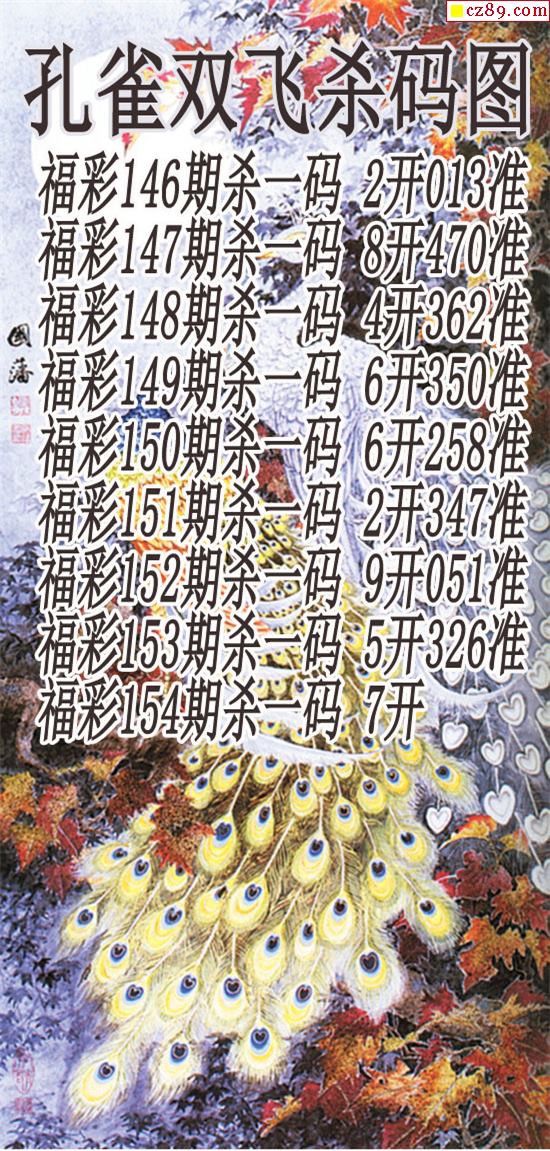 cz89.com
孔雀双飞杀码图
福彩146期杀一码 2开013准
福彩147期杀一码 8开470准
福彩148期杀一码 4开362准
福彩149期杀一码 6开350准
福彩150期杀一码 6开258准
福彩151期杀一码 2开347准
福彩152期杀一码 9开051准
福彩153期杀一码 5开326准
福彩154期杀一码 7开
國藩